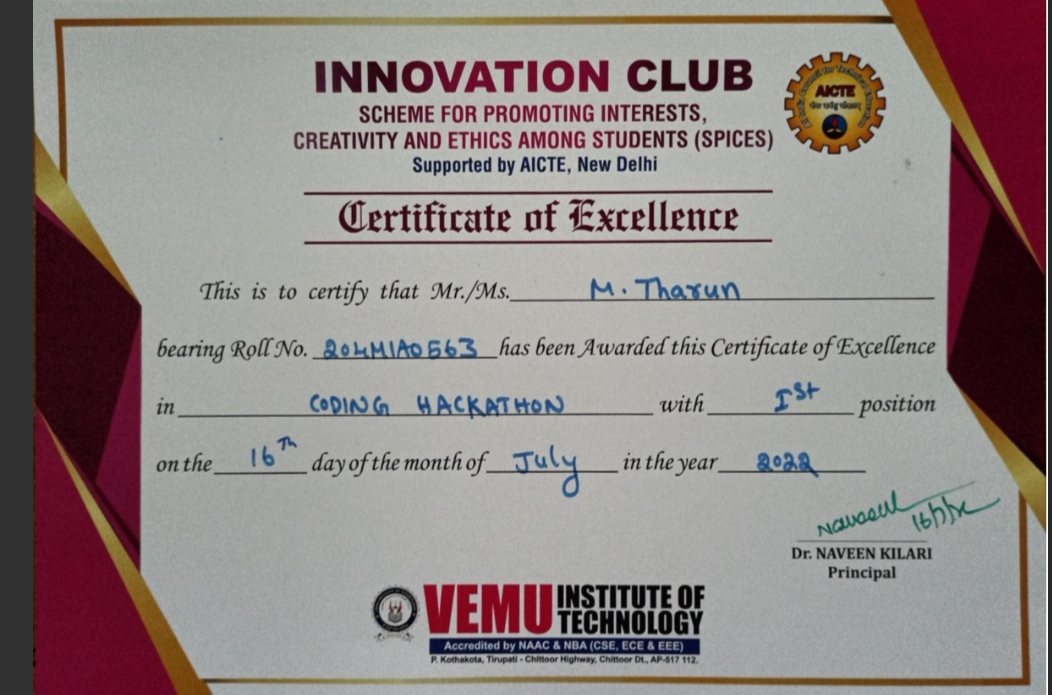 INNOVATION CLUB
SCHEME FOR PROMOTING INTERESTS,
CREATIVITY AND ETHICS AMONG STUDENTS (SPICES)
Supported by AICTE, New Delhi
AICTE
Certificate of Excellence
This is to certify that Mr./Ms. M. Tharun
bearing Roll No. 204M1A0563 has been Awarded this Certificate of Excellence
in CODING HACKATHON with Ist position
on the 16Th day of the month of July in the year 2022
Dr. NAVEEN KILARI
Principal
VEMU INSTITUTE OF
TECHNOLOGY
Accredited by NAAC & NBA (CSE, ECE & EEE)
P. Kothakota, Tirupati - Chittoor Highway, Chittoor Dt., AP-517 112.